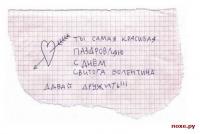 ТЫ САМАЯ КРАСИВАЯ
ПАЗДРОВЛЯЮ
С ДНЁМ
СВИТОГА ВОЛЕНТИНА
ДАВАЙ ДРУЖИТЬ!!!
noxo.py